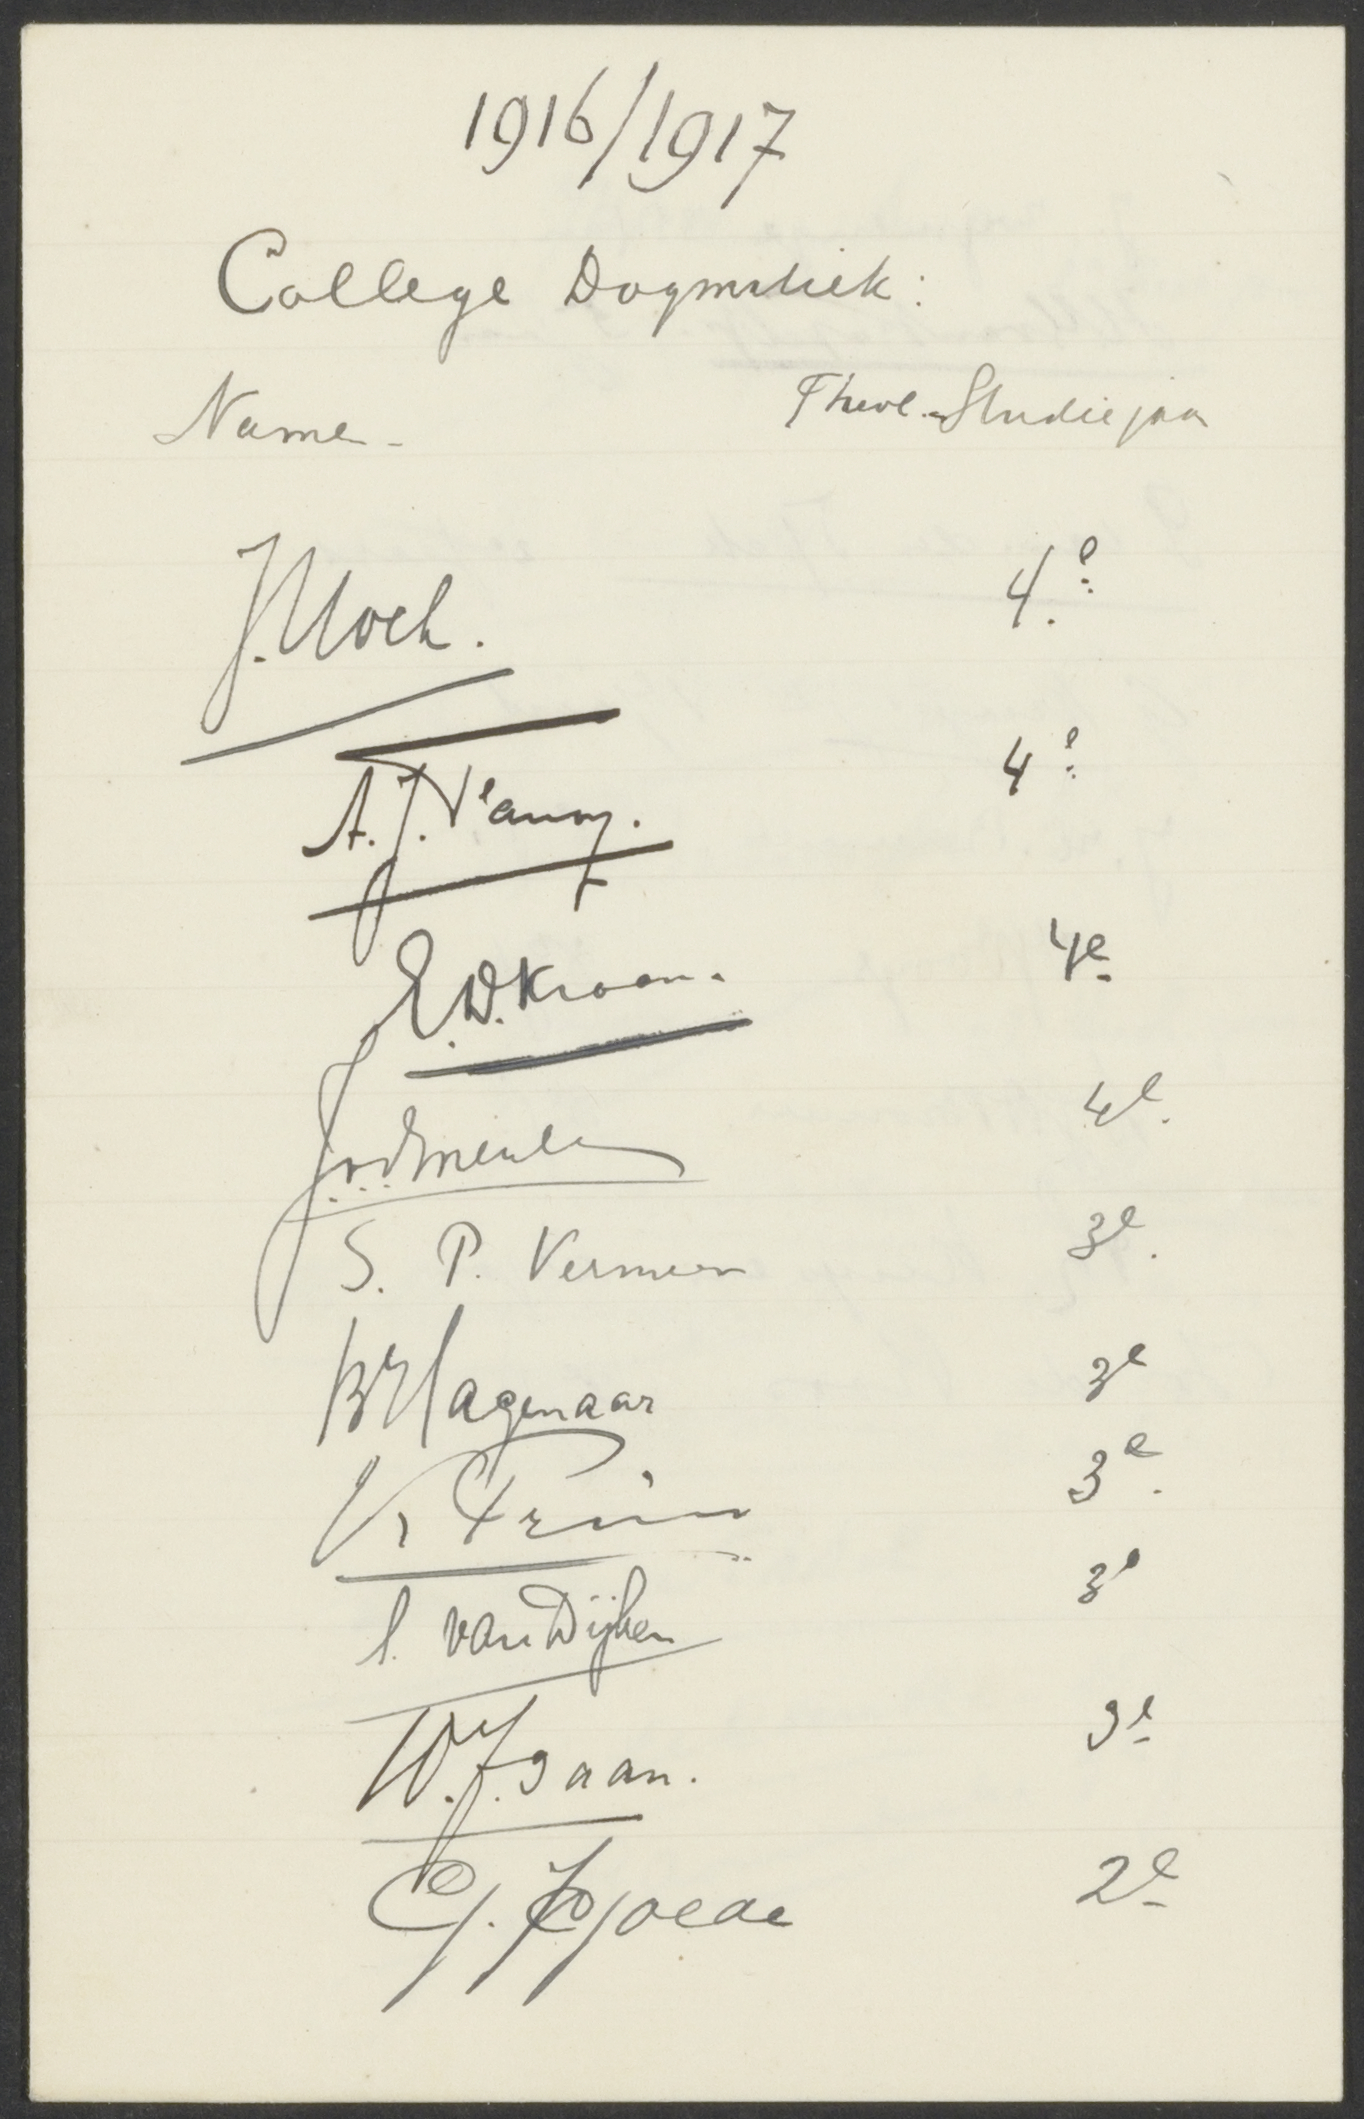 1916/1917
College Dogmatiek:
Namen
Theol. Studiejaar
J. Koch. 4e
A. J. 4e
E. D. Kroon. 4e
J. v. d. Meulen 4e.
S. P. Vermeer 3e.
B Hagenaar 3e
3e.
van Dijken 3e
W. J. Gaan. 3e
G. Goede 2e